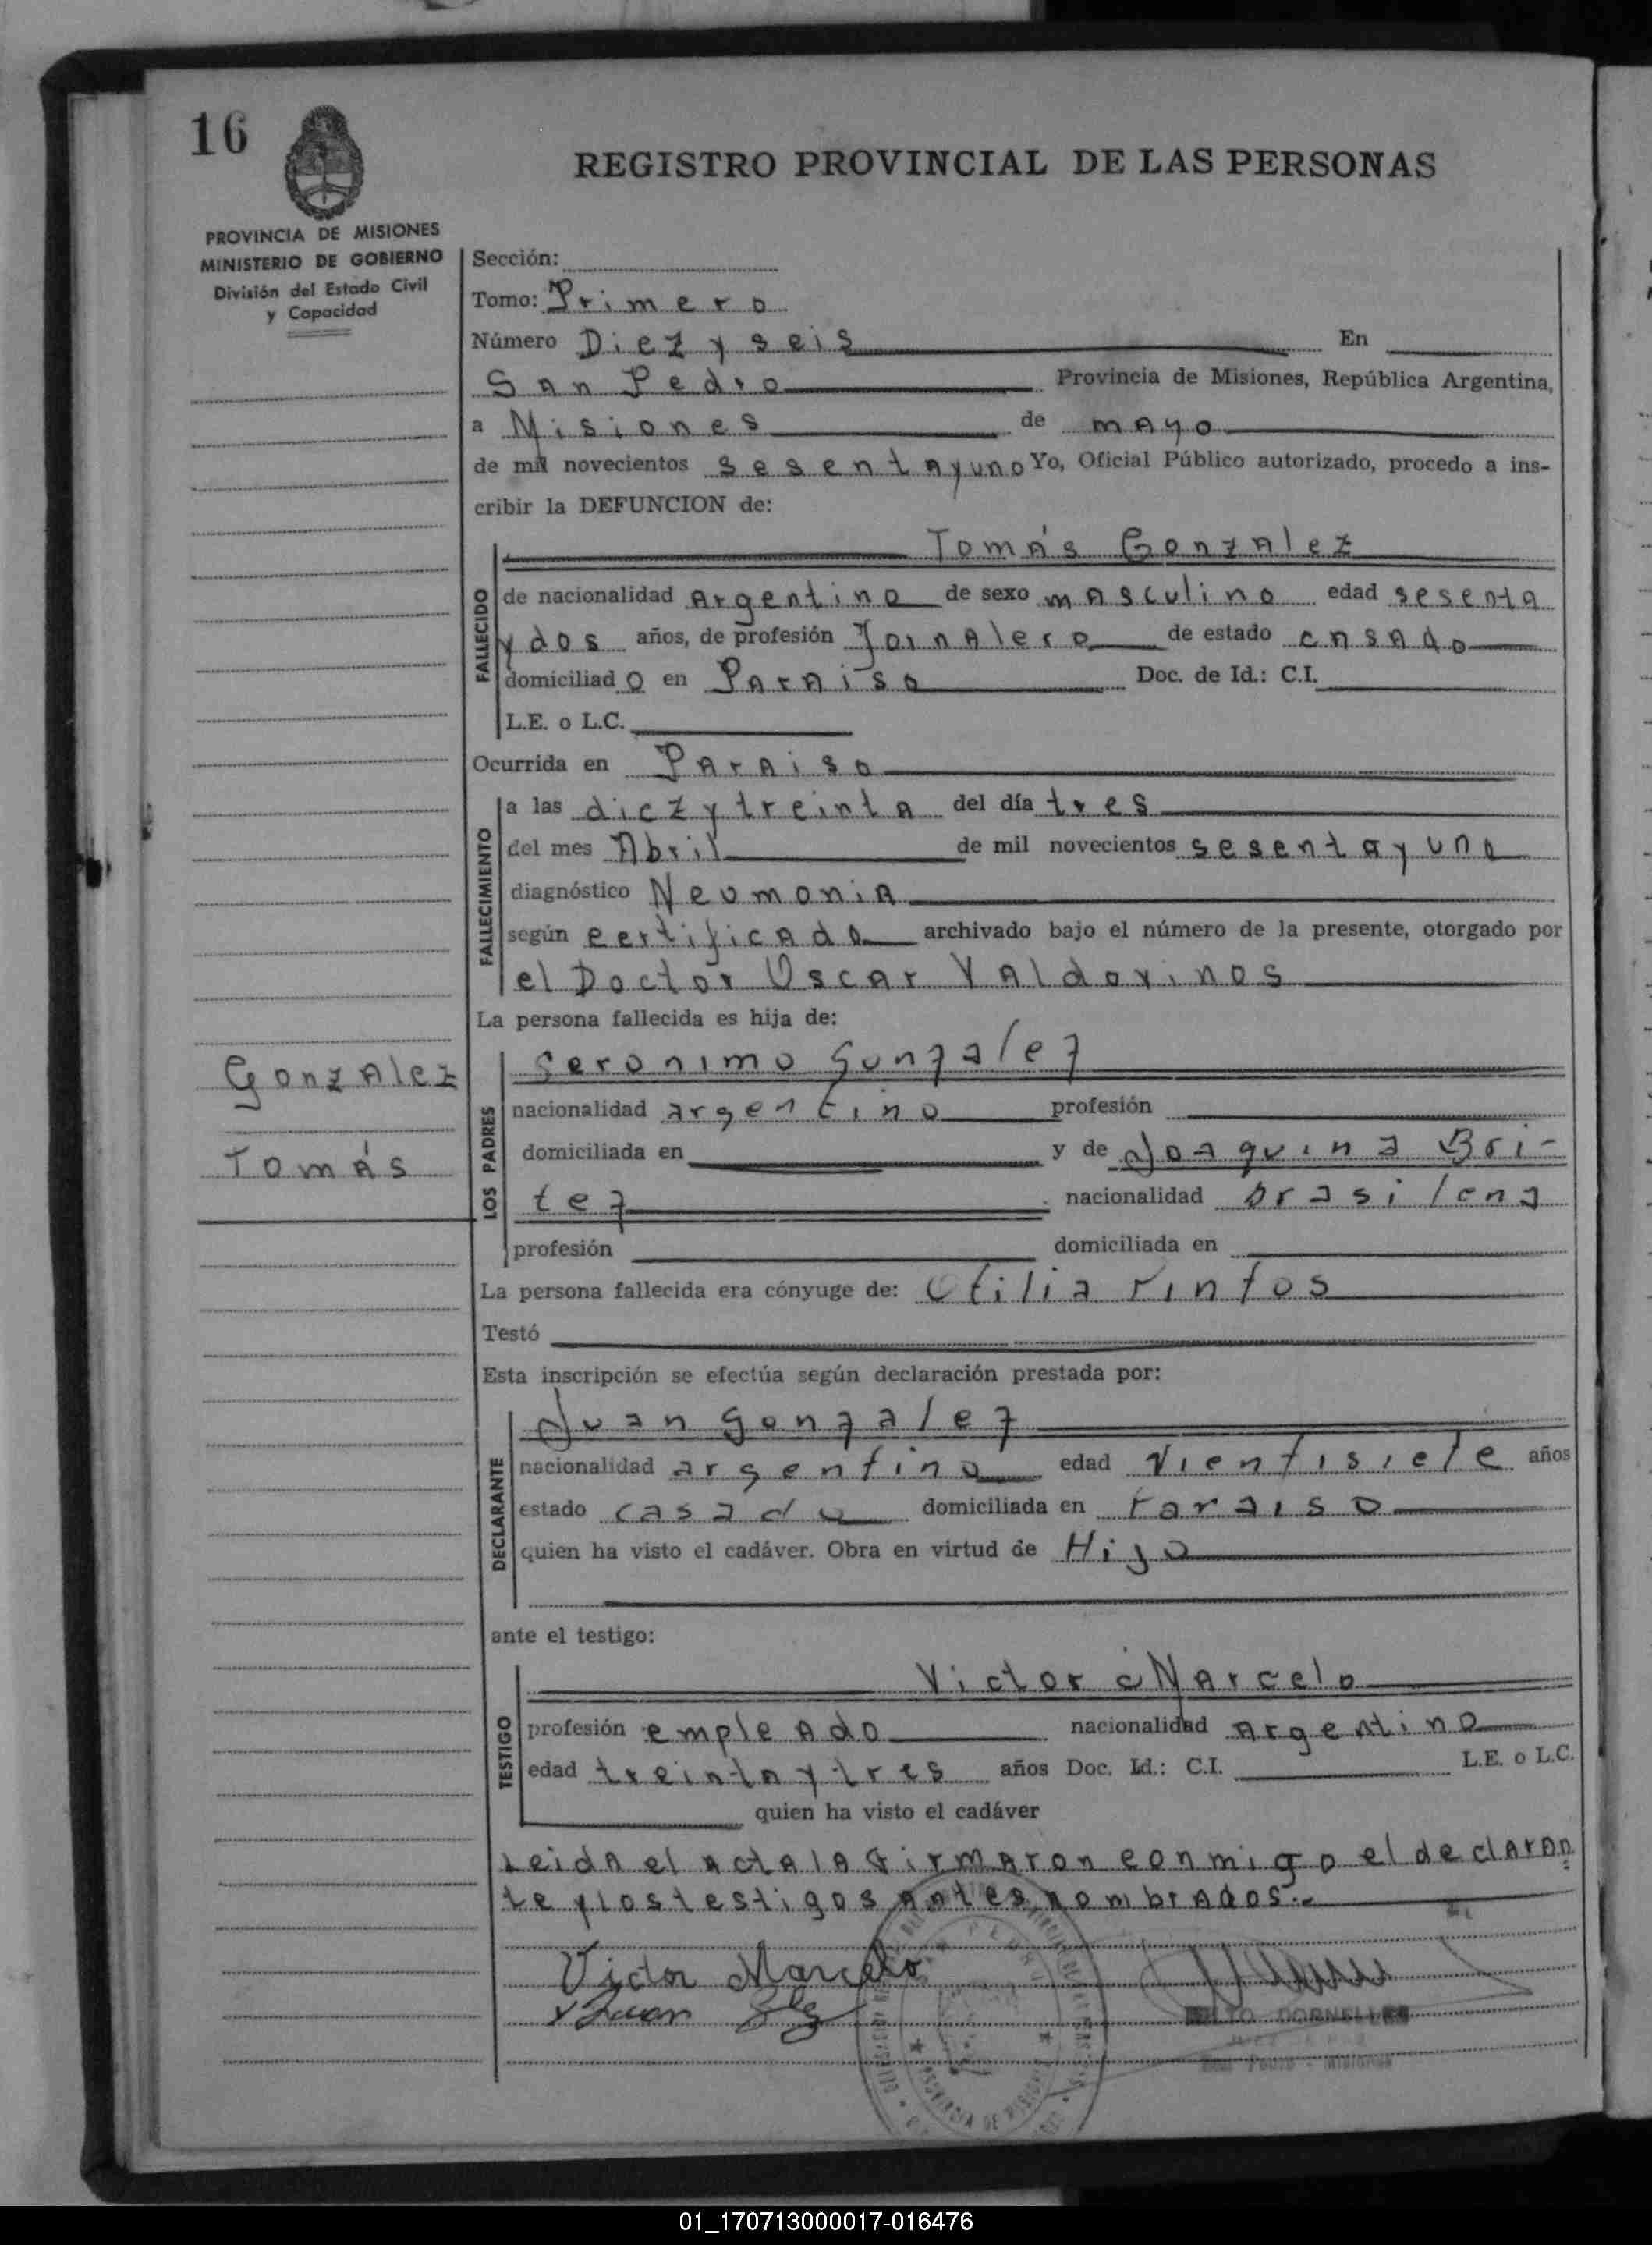 16
REGISTRO PROVINCIAL DE LAS PERSONAS
PROVINCIA DE MISIONES
MINISTERIO DE GOBIERNO
División del Estado Civil
y Capacidad
Sección:
Tomo: Primero
Número Diez y seis En
San Pedro Provincia de Misiones, República Argentina,
a Misiones de mayo
de mil novecientos sesenta y uno Yo, Oficial Público autorizado, procedo a ins-
cribir la DEFUNCION de:
Tomás Gonzalez
FALLECIDO
de nacionalidad Argentino de sexo masculino edad sesenta
y dos años, de profesión Jornalero de estado casado
domiciliado en Paraiso Doc. de Id.: C.I.
L.E. o L.C.
Ocurrida en Paraiso
FALLECIMIENTO
a las diez y treinta del día tres
del mes Abril de mil novecientos sesenta y uno
diagnóstico Neumonia
según certificado archivado bajo el número de la presente, otorgado por
el Doctor Oscar Valdovinos
La persona fallecida es hija de:
Gonzalez
Tomás
LOS PADRES
Geronimo Gonzalez
nacionalidad argentino profesión
domiciliada en y de Joaquina Bri-
tez nacionalidad brasilena
profesión domiciliada en
La persona fallecida era cónyuge de: Otilia Pintos
Testó
Esta inscripción se efectúa según declaración prestada por:
DECLARANTE
Juan Gonzalez
nacionalidad argentino edad Vientisiete años
estado casado domiciliada en Paraiso
quien ha visto el cadáver. Obra en virtud de Hijo
ante el testigo:
TESTIGO
Victor Marcelo
profesión empleado nacionalidad Argentino
edad treinta y tres años Doc. Id.: C.I. L.E. o L.C.
quien ha visto el cadáver
Leida el acta la firmaron conmigo el declaran
te y los testigos antes nombrados.-
Victor Marcelo
Juan Glz
DORNELLES
San Pedro - Misiones
PROVINCIA DE MISIONES
01_170713000017-016476